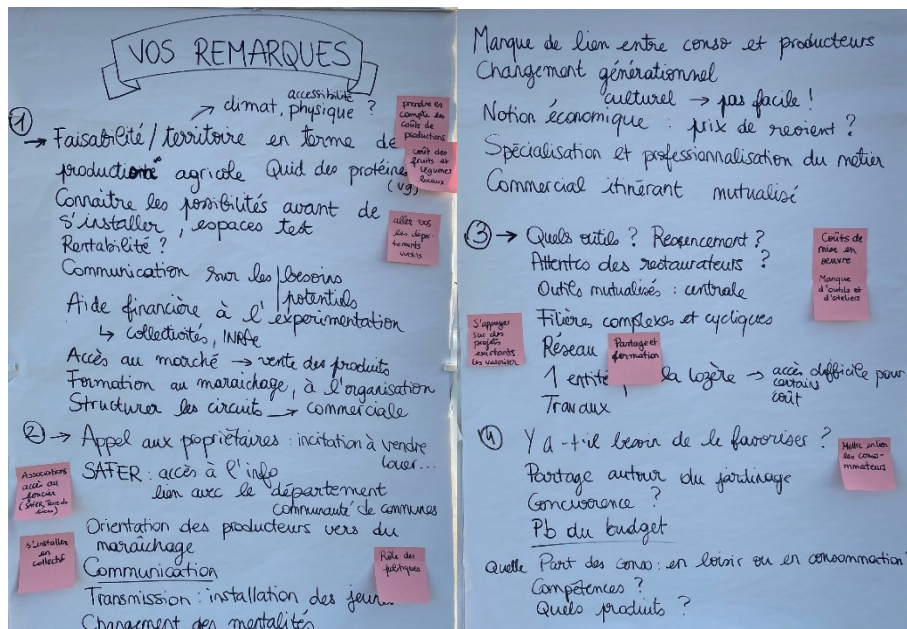 VOS REMARQUES
accessibilité
→ climat, physique ?
①
→ Faisabilité / territoire en terme de
production agricole Quid des protéines
(vg)
Connaitre les possibilités avant de
s'installer, espaces test
Rentabilité ?
Communication sur les besoins
potentiels
Aide financière à l'expérimentation
↳ collectivités, INRAe
Accès au marché → vente des produits
Formation au maraichage, à l'organisation
Structurer les circuits → commerciale
② → Appel aux popriétaires : incitation à vendre
louer...
SAFER : accès à l'info
lien avec le département
communauté de communes
Orientation des producteurs vers du
maraîchage
Communication
Transmission : installation des jeunes
Changement des mentalités
prendre en
compte les
coûts de
productions
coût des
fruits et
légumes
locaux
aller vers
les dépar-
tements
voisins
Associations
accès au
foncier
(SAFER, Terre de
liens)
s'installer
en
collectif
Rôle des
politiques
Manque de lien entre conso et producteurs
Changement générationnel
culturel → pas facile !
Notion économique : prix de revient ?
Spécialisation et professionnalisation du métier
Commercial itinérant mutualisé
③ → Quels outils ? Recensement ?
Attentes des restaurateurs ?
Outils mutualisés : centrale
Filières complexes et cycliques
Réseau
1 entité la lozère → accès difficile pour
certains
coût
Travaux
Coûts de
mise en
oeuvre
Manque
d'outils et
d'ateliers
S'appuyer
sur des
projets
existants
les valoriser
Partage et
formation
④ Y a-t-il besoin de le favoriser ?
Partage autour du jardinage
Concurrence ?
Pb du budget
Quelle Part des conso : en loisir ou en consommation
Compétences ?
Quels produits ?
Mettre en lien
les conso-
mmateurs